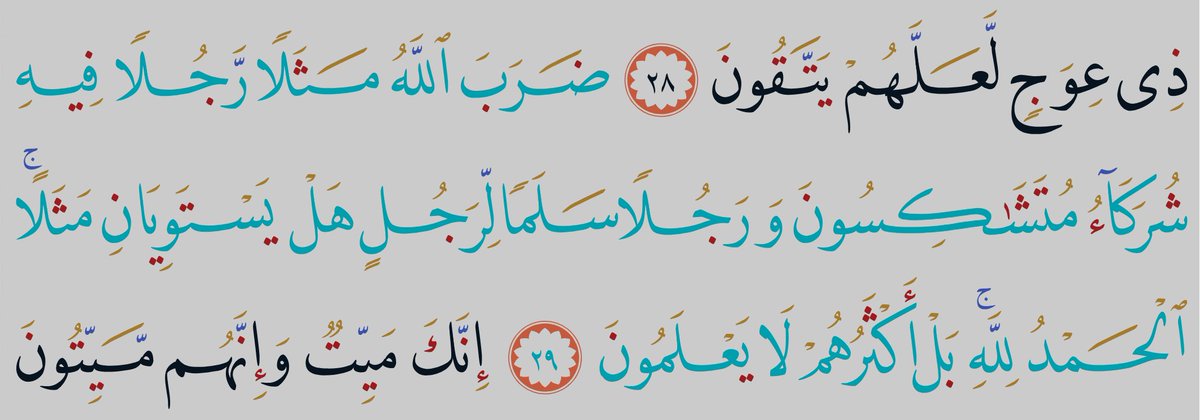 ذِى عِوَجٍ لَّعَلَّهُمْ يَتَّقُونَ ٢٨ ضَرَبَ ٱللَّهُ مَثَلًا رَّجُلًا فِيهِ
شُرَكَآءُ مُتَشَٰكِسُونَ وَرَجُلًا سَلَمًا لِّرَجُلٍ هَلْ يَسْتَوِيَانِ مَثَلًاۚ
ٱلْحَمْدُ لِلَّهِۚ بَلْ أَكْثَرُهُمْ لَا يَعْلَمُونَ ٢٩ إِنَّكَ مَيِّتٌ وَإِنَّهُم مَّيِّتُونَ